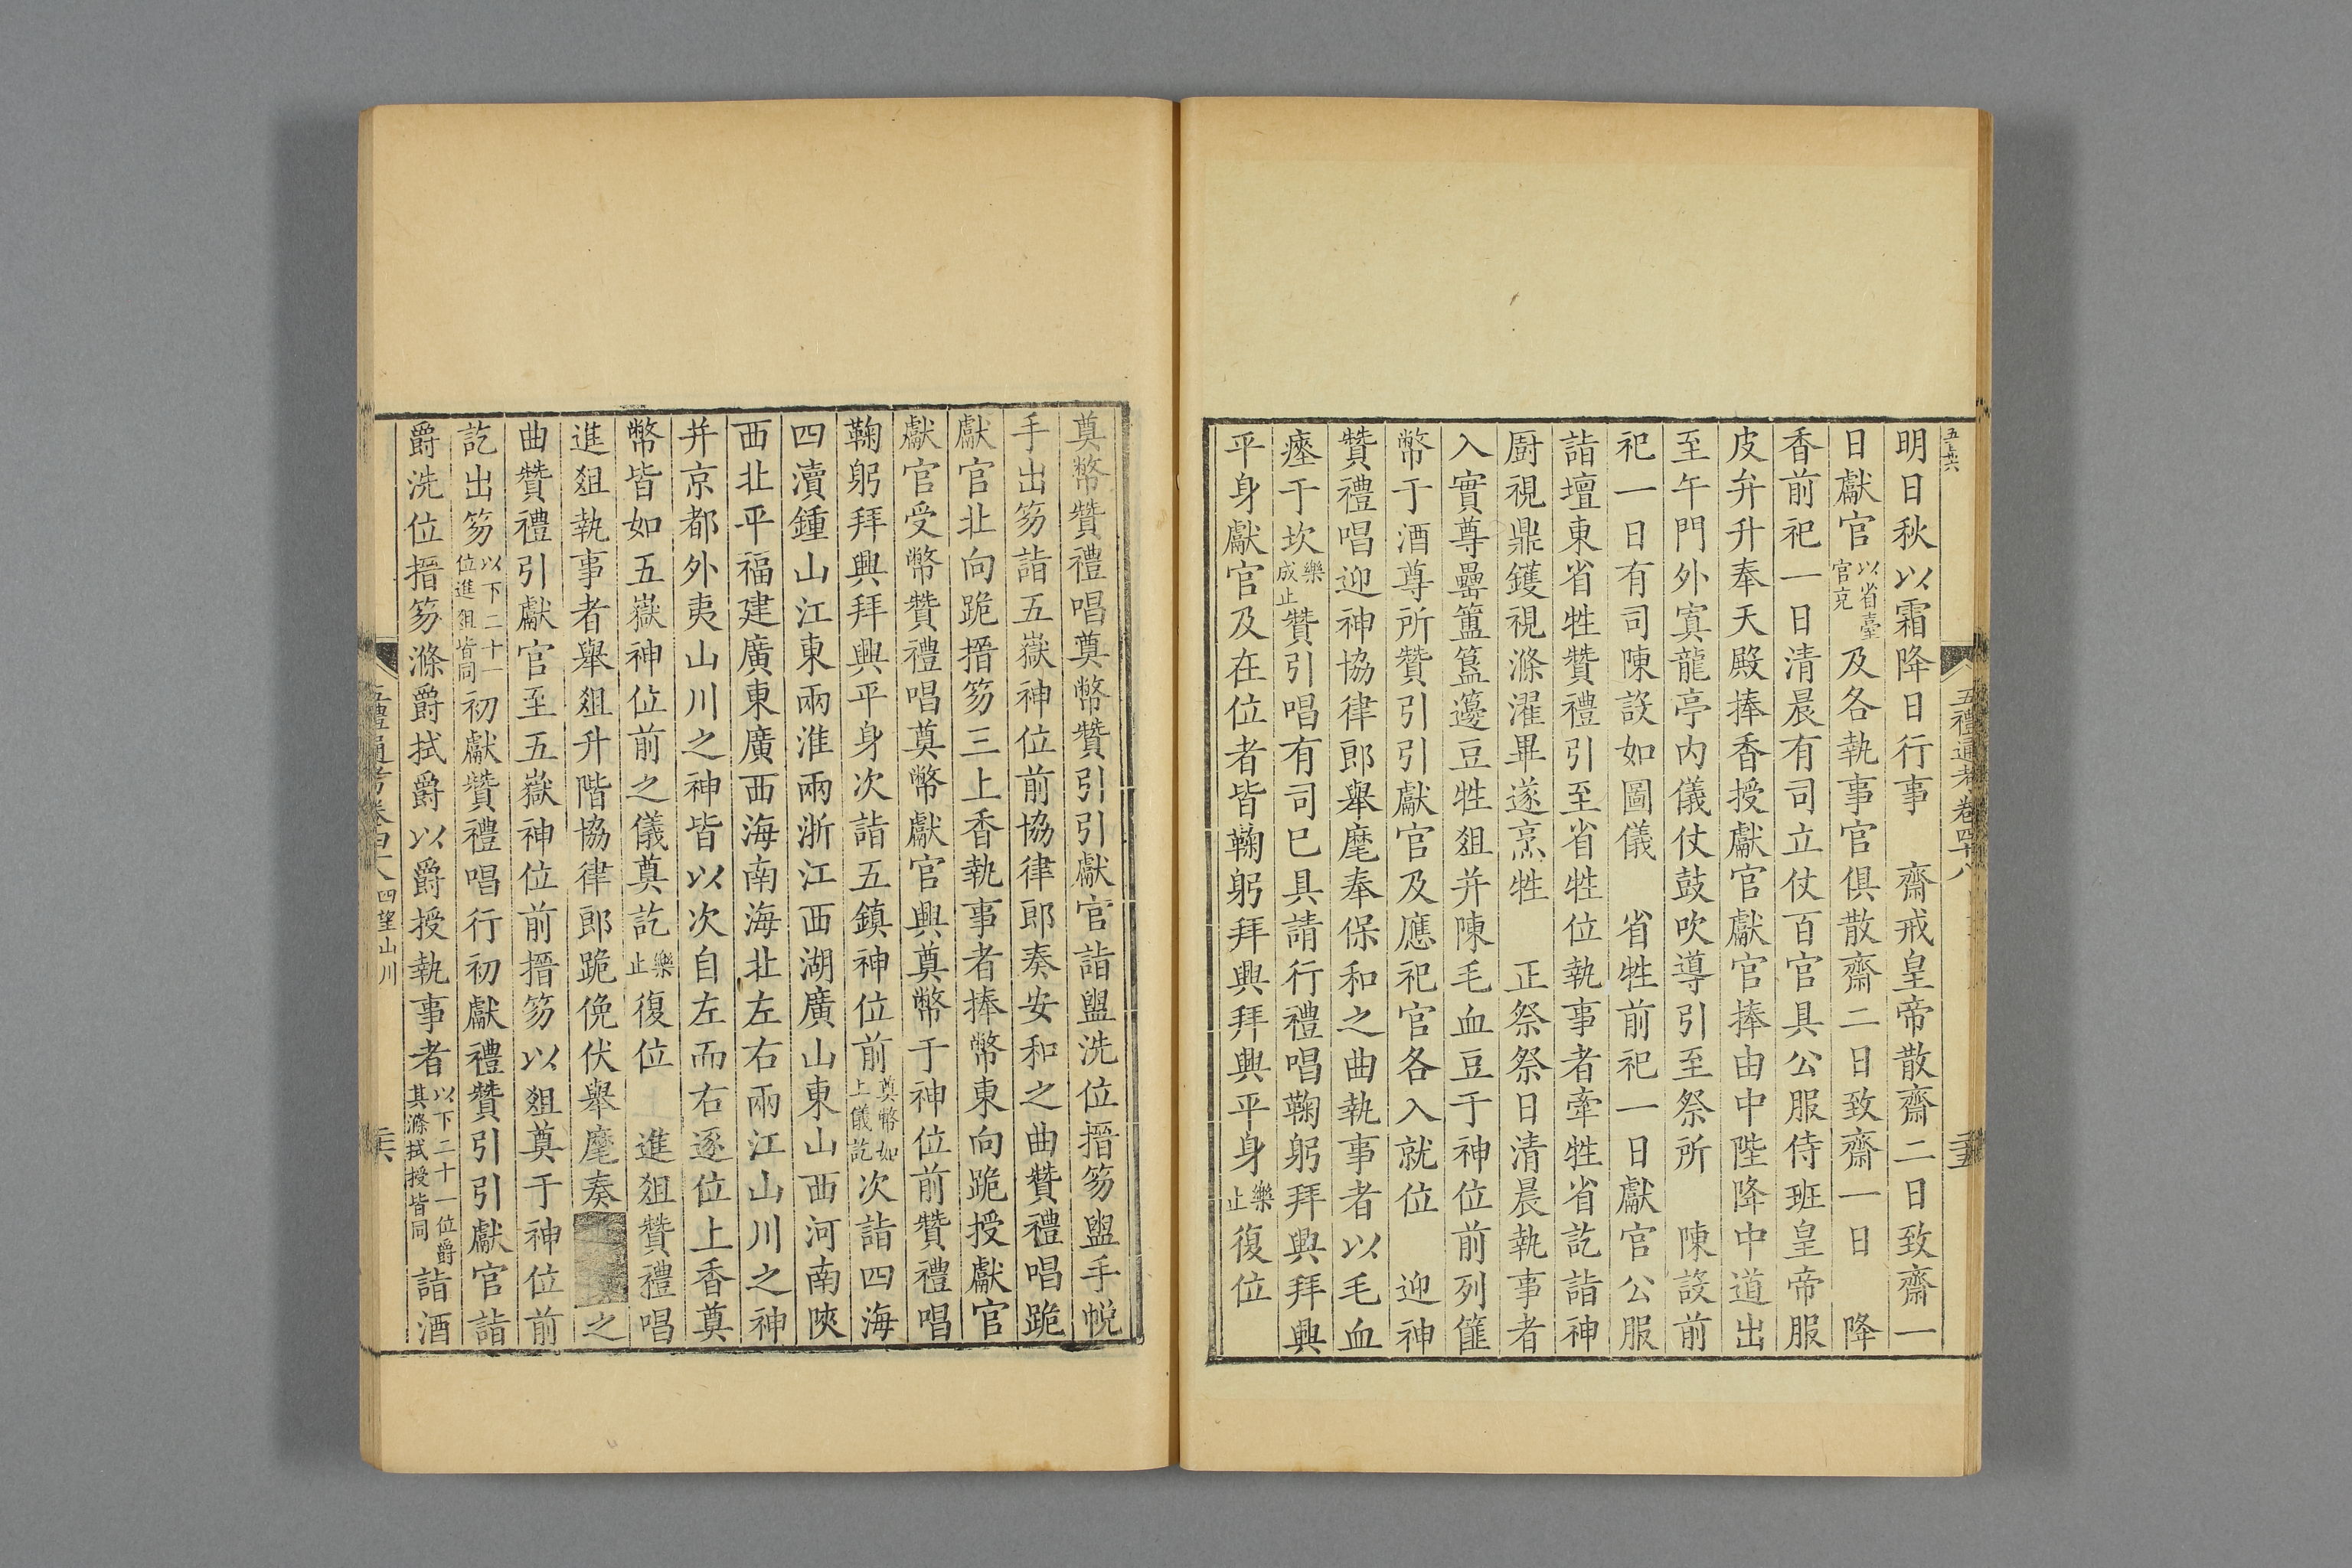 五禮通考卷四十八
明日秋以霜降日行事　齋戒皇帝散齋二日致齋一
日獻官以省臺官充及各執事官俱散齋二日致齋一日　降
香前祀一日清晨有司立仗百官具公服侍班皇帝服
皮弁升奉天殿捧香授獻官獻官捧由中陛降中道出
至午門外寘龍亭内儀仗鼓吹導引至祭所　陳設前
祀一日有司陳設如圖儀　省牲前祀一日獻官公服
詣壇東省牲贊禮引至省牲位執事者牽牲省訖詣神
厨視鼎鑊視滌濯畢遂烹牲　正祭祭日清晨執事者
入實尊罍簠簋籩豆牲爼并陳毛血豆于神位前列篚
幣于酒尊所贊引引獻官及應祀官各入就位　迎神
贊禮唱迎神協律郎舉麾奉保和之曲執事者以毛血
瘞于坎樂成止贊引唱有司巳具請行禮唱鞠躬拜興拜興
平身獻官及在位者皆鞠躬拜興拜興平身樂止復位
奠幣贊禮唱奠幣贊引引獻官詣盥洗位搢笏盥手帨
手出笏詣五嶽神位前協律郎奏安和之曲贊禮唱跪
獻官北向跪搢笏三上香執事者捧幣東向跪授獻官
獻官受幣贊禮唱奠幣獻官興奠幣于神位前贊禮唱
鞠躬拜興拜興平身次詣五鎮神位前奠幣如上儀訖次詣四海
四瀆鍾山江東兩淮兩浙江西湖廣山東山西河南陝
西北平福建廣東廣西海南海北左右兩江山川之神
并京都外夷山川之神皆以次自左而右逐位上香奠
幣皆如五嶽神位前之儀奠訖樂止復位　進爼贊禮唱
進爼執事者舉爼升階協律郎跪俛伏舉麾奏之
曲贊禮引獻官至五嶽神位前搢笏以爼奠于神位前
訖出笏以下二十一位進爼皆同初獻贊禮唱行初獻禮贊引引獻官詣
爵洗位搢笏滌爵拭爵以爵授執事者以下二十一位爵其滌拭授皆同詣酒
四望山川